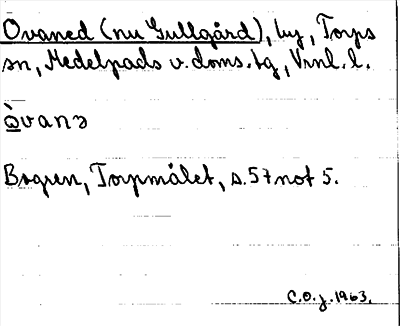 Ovaned (nu Gullgård), by, Torps
sn, Medelpads v. doms. tg, Vrnl. l.
ὼvanə
Bogren, Torpmålet, s. 57 not 5.
C.O.J. 1963.